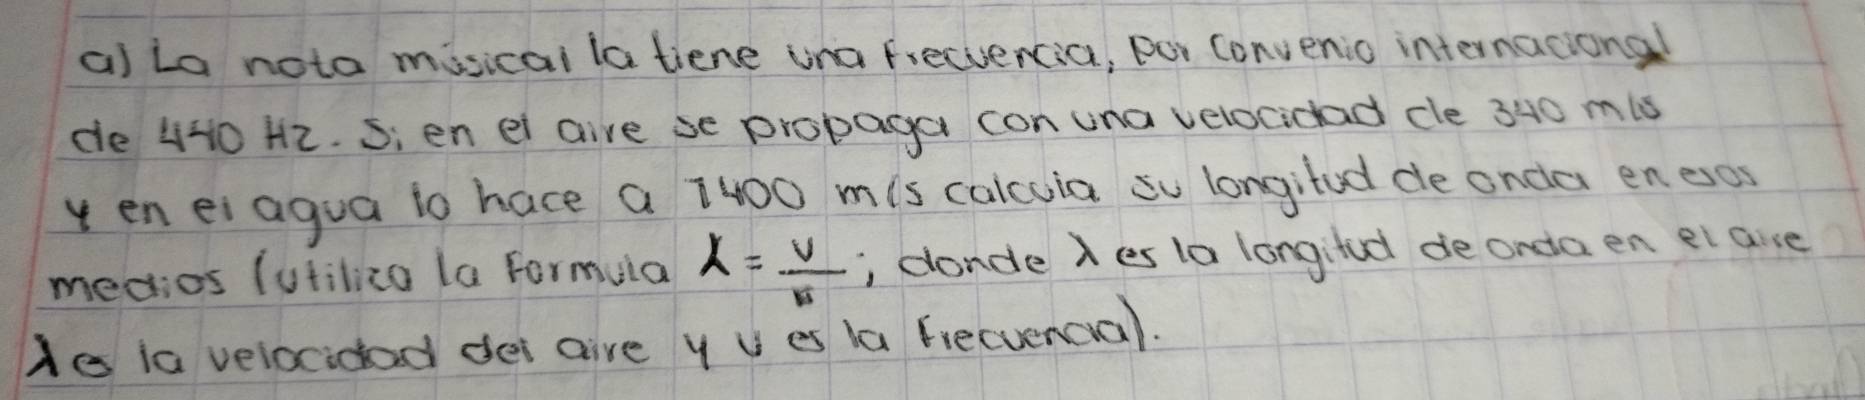 a) La nota músical la tiene una frecuencia, por convenio internacional
de 440 Hz. Si en el aire se propaga con una velocidad de 340 m/s
y en el agua lo hace a 1400 m/s calcula su longitud de onda en esos
medios (utiliza la formula λ = v/n; donde λ es la longitud de onda en el aire
λ es la velocidad del aire y v es la frecuencia).